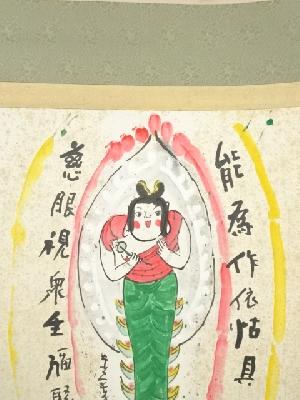 能為作依怙具
慈眼視衆生福聚